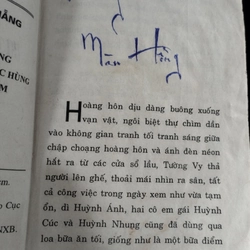 HẰNG
NG
C HÙNG
M
m.
p Cục
NXB.
Mãn Hồng
Hoàng hôn dịu dàng buông xuống
vạn vật, ngôi biệt thự chìm dần
vào không gian tranh tối tranh sáng giữa
chập choạng hoàng hôn và ánh đèn nêon
hắt ra từ các cửa sổ lầu, Tường Vy thả
người lên ghế, thoải mái nhìn ra sân, tất
cả công việc trong ngày xem như vừa tạm
ổn, dì Huỳnh Ánh, hai cô em gái Huỳnh
Cúc và Huỳnh Nhung cũng đã dùng qua
loa bữa ăn tối, giống như là một bữa điểm